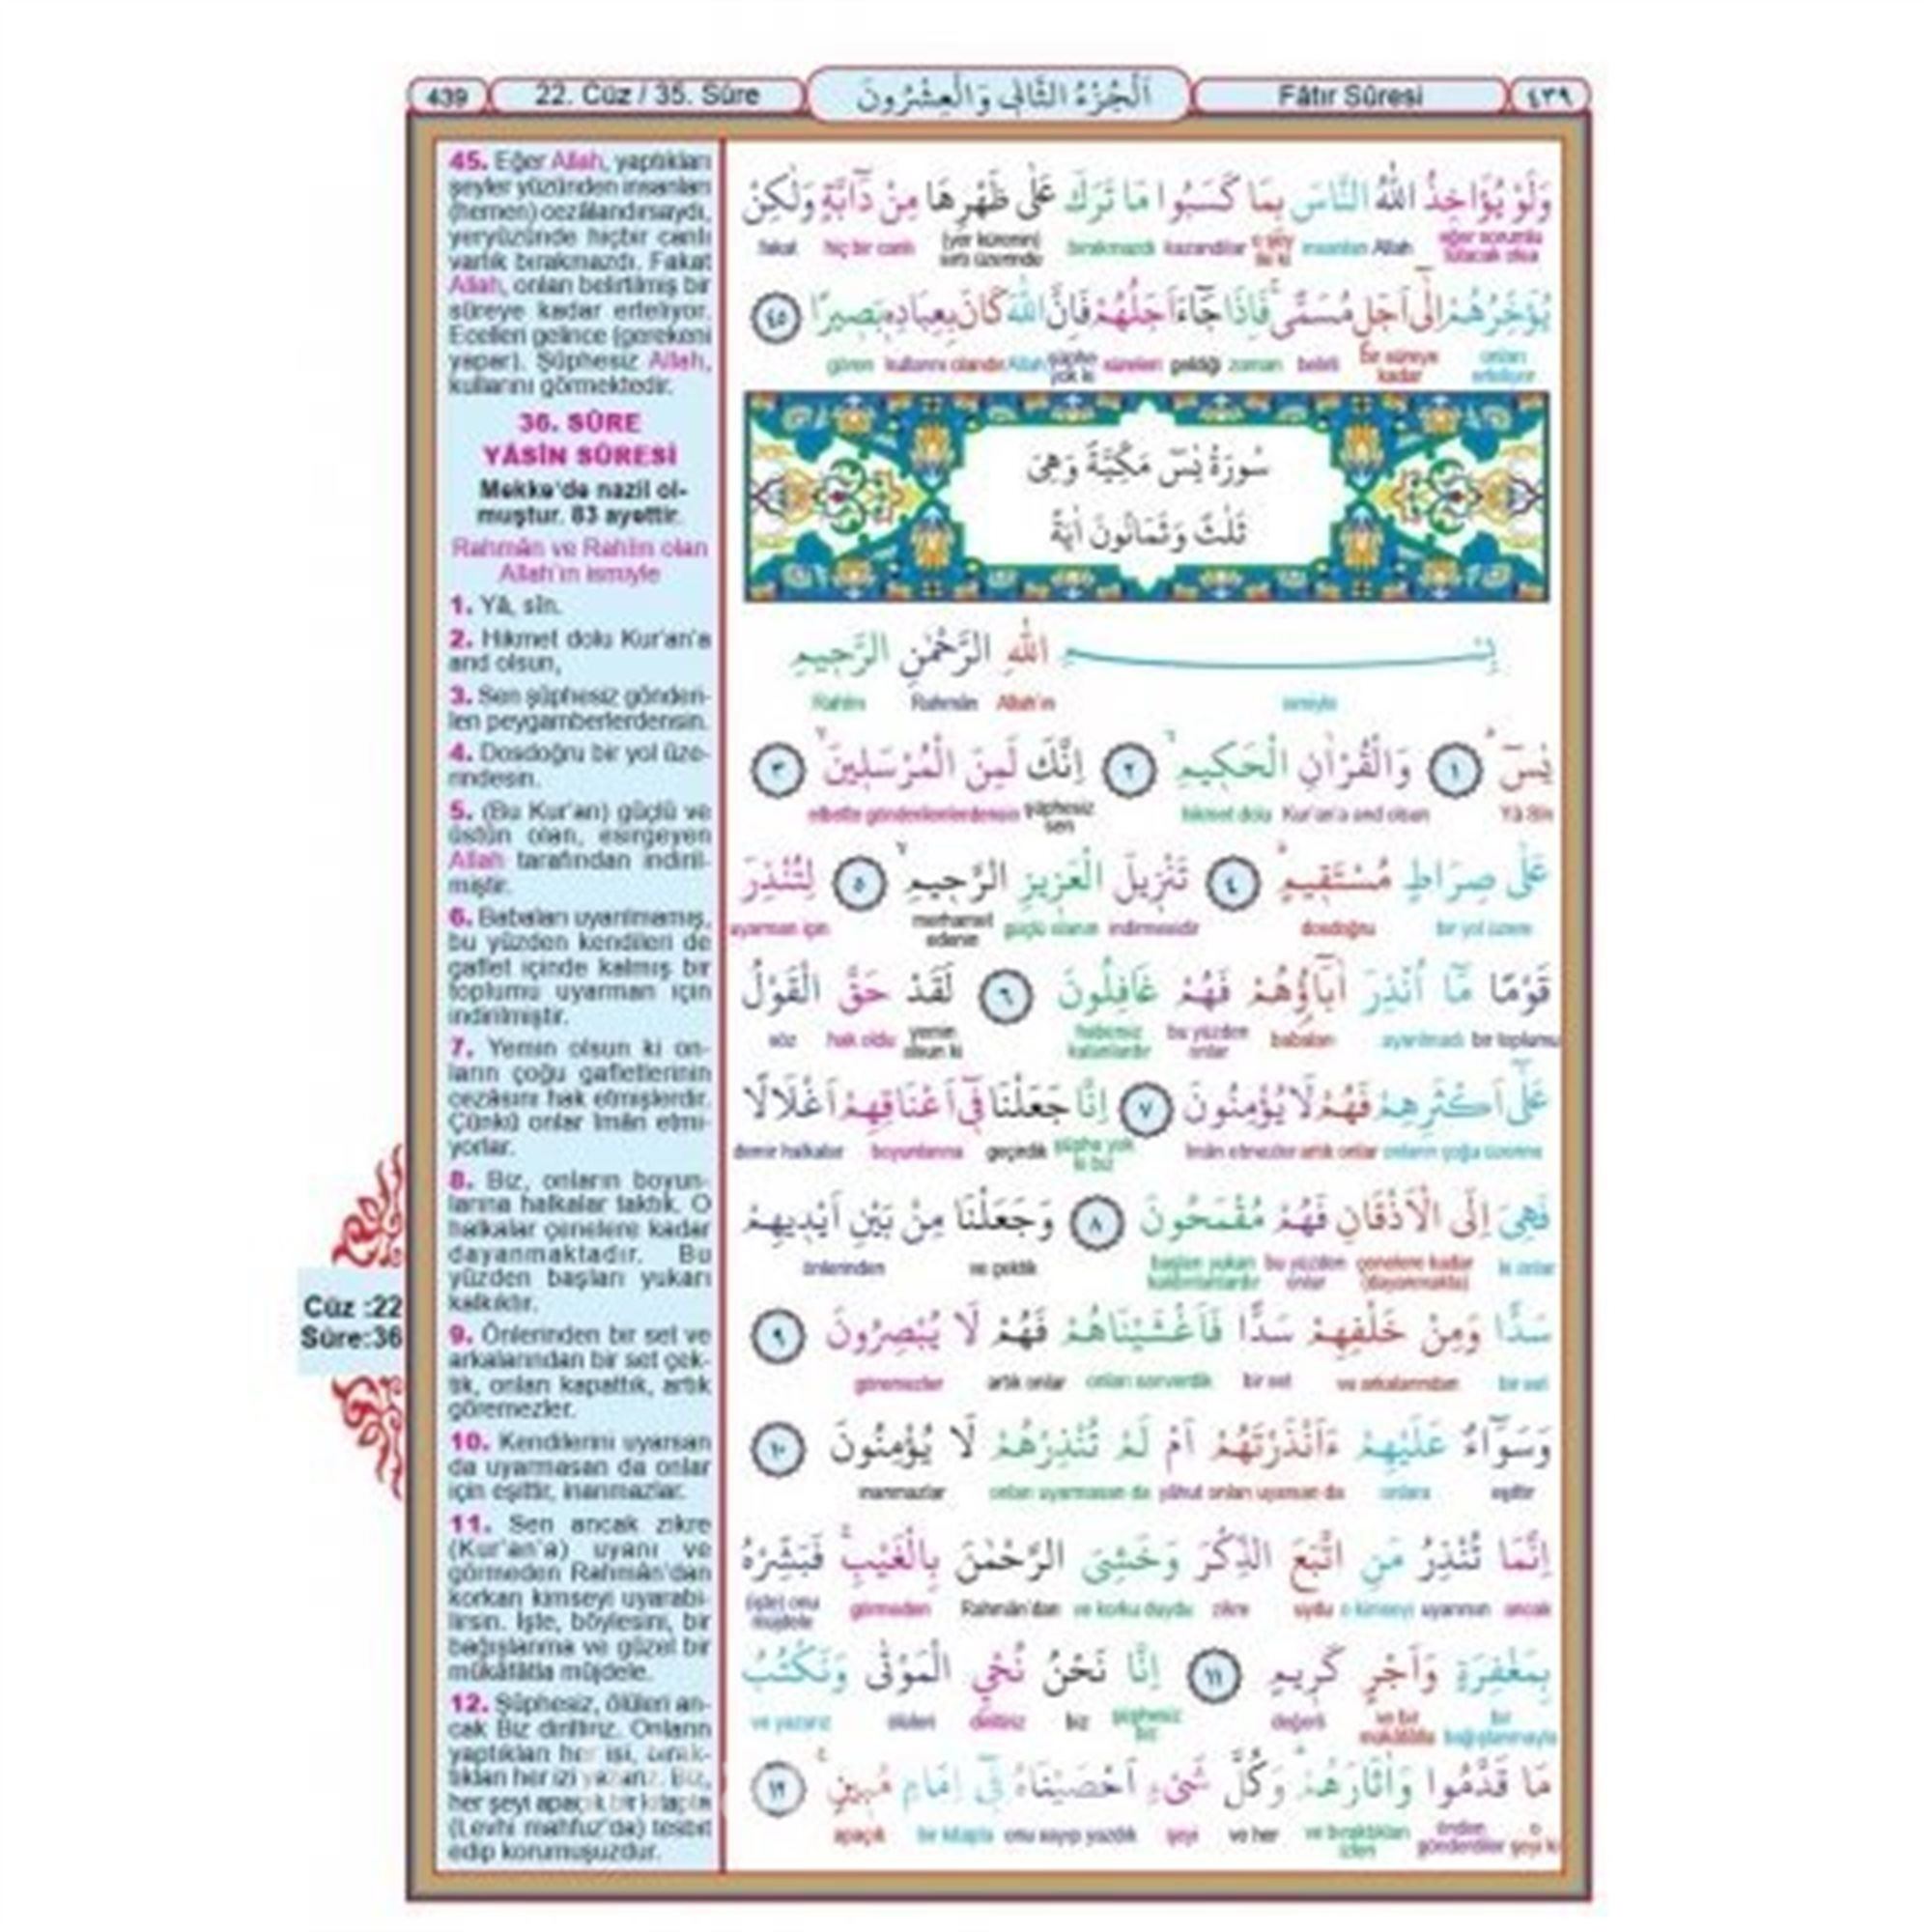 439
22. Cüz / 35. Sûre
اَلْجُزْءُ الثَّانِي وَالْعِشْرُونَ
Fâtır Sûresi
٤٣٩
45. Eğer Allah, yaptıkları
şeyler yüzünden insanları
(hemen) cezâlandırsaydı,
yeryüzünde hiçbir canlı
varlık bırakmazdı. Fakat
Allah, onları belirtilmiş bir
süreye kadar erteliyor.
Ecelleri gelince (gerekeni
yapar). Şüphesiz Allah,
kullarını görmektedir.
36. SÛRE
YÂSÎN SÛRESİ
Mekke'de nazil ol-
muştur. 83 ayettir.
Rahmân ve Rahîm olan
Allah'ın ismiyle
1. Yâ, sîn.
2. Hikmet dolu Kur'an'a
and olsun,
3. Sen şüphesiz gönderi-
len peygamberlerdensin.
4. Dosdoğru bir yol üze-
rindesin.
5. (Bu Kur'an) güçlü ve
üstün olan, esirgeyen
Allah tarafından indiril-
miştir.
6. Babaları uyarılmamış,
bu yüzden kendileri de
gaflet içinde kalmış bir
toplumu uyarman için
indirilmiştir.
7. Yemin olsun ki on-
ların çoğu gafletlerinin
cezâsını hak etmişlerdir.
Çünkü onlar îmân etmi-
yorlar.
8. Biz, onların boyun-
larına halkalar taktık. O
halkalar çenelere kadar
dayanmaktadır. Bu
yüzden başları yukarı
kalkıktır.
9. Önlerinden bir set ve
arkalarından bir set çek-
tik, onları kapattık, artık
göremezler.
10. Kendilerini uyarsan
da uyarmasan da onlar
için eşittir, inanmazlar.
11. Sen ancak zikre
(Kur'an'a) uyanı ve
görmeden Rahmân'dan
korkan kimseyi uyarabi-
lirsin. İşte, böylesini, bir
bağışlanma ve güzel bir
mükâfâtla müjdele.
12. Şüphesiz, ölüleri an-
cak Biz diriltiriz. Onların
yaptıkları her işi, bırak-
tıkları her izi yazarız. Biz,
her şeyi apaçık bir kitapta
(Levhi mahfuz'da) tesbit
edip korumuşuzdur.
Cüz :22
Sûre:36
وَلَوْ يُؤَاخِذُ اللّٰهُ النَّاسَ بِمَا كَسَبُوا مَا تَرَكَ عَلٰى ظَهْرِهَا مِنْ دَٓابَّةٍ وَلٰكِنْ
eğer sorumlu tutacak olsa Allah insanları o şey ile ki kazandılar bırakmazdı (yer kürenin) sırtı üzerinde hiç bir canlı fakat
يُؤَخِّرُهُمْ اِلٰٓى اَجَلٍ مُسَمًّىۚ فَاِذَا جَٓاءَ اَجَلُهُمْ فَاِنَّ اللّٰهَ كَانَ بِعِبَادِه۪ بَص۪يرًا ٤٥
onları erteliyor bir süreye kadar belirli zaman geldiği süreleri şüphe yok ki Allah olandır kullarını gören
سُورَةُ يٰسٓ مَكِّيَّةٌ وَهِيَ
ثَلٰثٌ وَثَمَانُونَ اٰيَةً
بِسْمِ اللّٰهِ الرَّحْمٰنِ الرَّح۪يمِ
ismiyle Allah'ın Rahmân Rahîm
يٰسٓۜ ١ وَالْقُرْاٰنِ الْحَك۪يمِۙ ٢ اِنَّكَ لَمِنَ الْمُرْسَل۪ينَۙ ٣
Yâ Sîn Kur'an'a and olsun hikmet dolu şüphesiz sen elbette gönderilenlerdensin
عَلٰى صِرَاطٍ مُسْتَق۪يمٍۜ ٤ تَنْز۪يلَ الْعَز۪يزِ الرَّح۪يمِۙ ٥ لِتُنْذِرَ
bir yol üzere dosdoğru indirmesidir güçlü olanın merhamet edenin uyarman için
قَوْمًا مَٓا اُنْذِرَ اٰبَٓاؤُهُمْ فَهُمْ غَافِلُونَ ٦ لَقَدْ حَقَّ الْقَوْلُ
bir toplumu uyarılmadı babaları bu yüzden onlar habersiz kalanlardır yemin olsun ki hak oldu söz
عَلٰٓى اَكْثَرِهِمْ فَهُمْ لَا يُؤْمِنُونَ ٧ اِنَّا جَعَلْنَا ف۪ٓي اَعْنَاقِهِمْ اَغْلَالًا
onların çoğu üzerine artık onlar îmân etmezler şüphe yok ki biz geçirdik boyunlarına demir halkalar
فَهِيَ اِلَى الْاَذْقَانِ فَهُمْ مُقْمَحُونَ ٨ وَجَعَلْنَا مِنْ بَيْنِ اَيْد۪يهِمْ
ki onlar çenelere kadar (dayanmakta) bu yüzden onlar başları yukarı kaldırılanlardır ve çektik önlerinden
سَدًّا وَمِنْ خَلْفِهِمْ سَدًّا فَاَغْشَيْنَاهُمْ فَهُمْ لَا يُبْصِرُونَ ٩
bir set ve arkalarından bir set onları sarıverdik artık onlar göremezler
وَسَوَٓاءٌ عَلَيْهِمْ ءَاَنْذَرْتَهُمْ اَمْ لَمْ تُنْذِرْهُمْ لَا يُؤْمِنُونَ ١٠
eşittir onlara onları uyarsan da yâhut onları uyarmasan da inanmazlar
اِنَّمَا تُنْذِرُ مَنِ اتَّبَعَ الذِّكْرَ وَخَشِيَ الرَّحْمٰنَ بِالْغَيْبِۚ فَبَشِّرْهُ
ancak uyarırsın o kimseyi uydu zikre ve korku duydu Rahmân'dan görmeden (işte) onu müjdele
بِمَغْفِرَةٍ وَاَجْرٍ كَر۪يمٍ ١١ اِنَّا نَحْنُ نُحْيِ الْمَوْتٰى وَنَكْتُبُ
bir bağışlanmayla ve bir mükâfâtla değerli şüphesiz biz biz diriltiriz ölüleri ve yazarız
مَا قَدَّمُوا وَاٰثَارَهُمْۜ وَكُلَّ شَيْءٍ اَحْصَيْنَاهُ ف۪ٓي اِمَامٍ مُب۪ينٍ۟ ١٢
o şeyi ki önden gönderdiler ve bıraktıkları izleri ve her şeyi onu sayıp yazdık bir kitapta apaçık